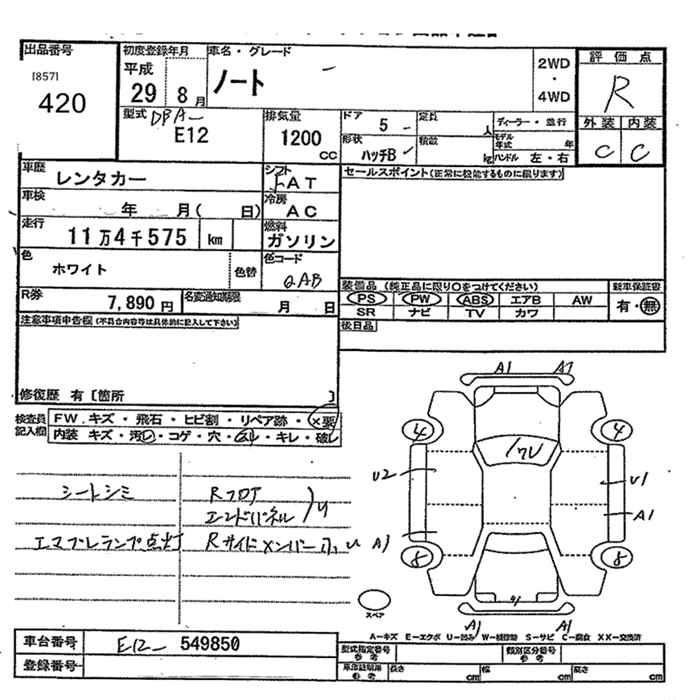 出品番号 初度登録年月 車名・グレード 2WD・4WD 評価点
[857] 平成 ノート R
420 29 8月
型式 DBA- E12 排気量 1200 CC ドア 5 定員 人 ディーラー・並行 外装 内装
形状 ハッチB 積載 kg モデル年式 年 C C
ハンドル 左・右
車歴 レンタカー シフト FAT セールスポイント(正常に機能するものに限ります)
車検 年 月( 日) 冷房 AC
走行 11万4千575 km 燃料 ガソリン
色 ホワイト 色替 色コード QAB
装備品(純正品に限り○をつけてください) 新車保証書
R券 7,890円 名変通知期限 月 日 PS PW ABS エアB AW 有・無
SR ナビ TV カワ
注意事項申告欄(不具合内容等は具体的に記入して下さい) 後日品
修復歴 有〔箇所 〕
検査員記入欄 FW. キズ・飛石・ヒビ割・リペア跡・×要
内装 キズ・汚レ・コゲ・穴・スレ・キレ・破レ
A1 A1
4 4
ワレ
U2 U1
シートシミ Rフロア
エンドパネル A1
エマブレランプ点灯 Rサイドメンバー A1
8 8
スペア A1 A1
A－キズ E－エクボ U－凹み W－補修跡 S－サビ C－腐食 XX－交換済
車台番号 E12- 549850 型式指定番号 参考 類別区分番号 参考
登録番号 車庫証明用 参考 長さ cm 幅 cm 高さ cm